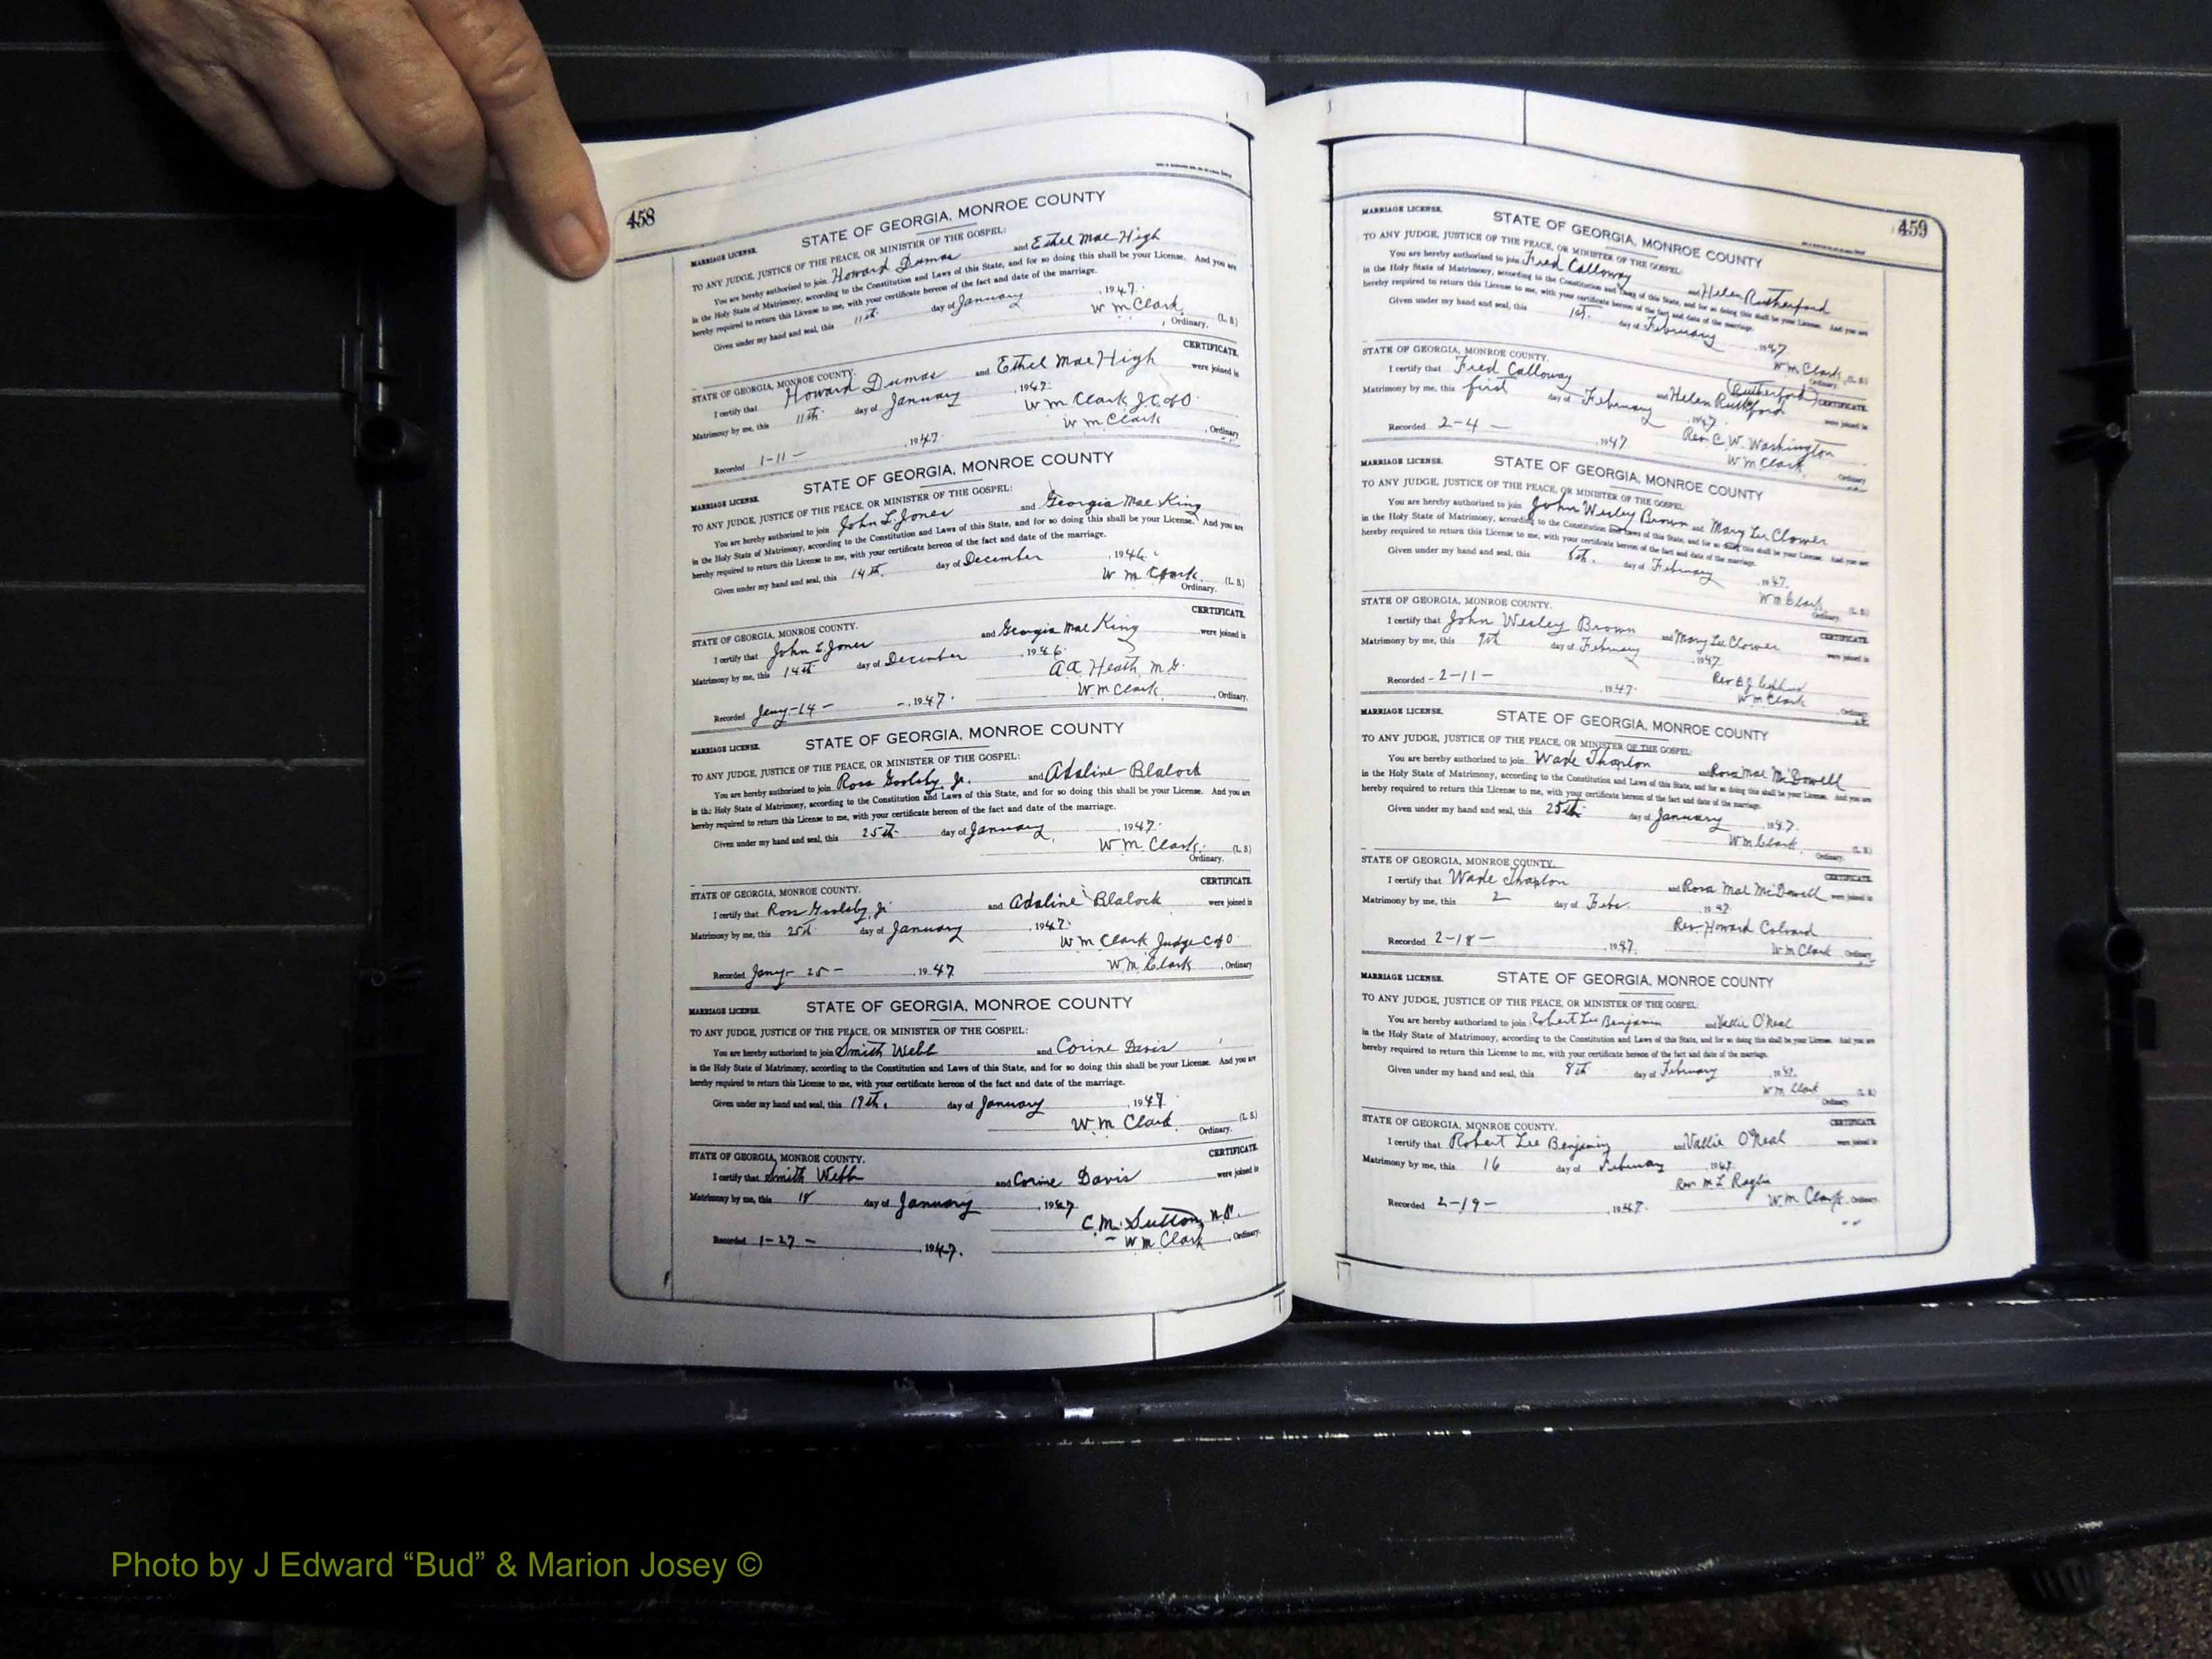 458
STATE OF GEORGIA, MONROE COUNTY
MARRIAGE LICENSE.
TO ANY JUDGE, JUSTICE OF THE PEACE, OR MINISTER OF THE GOSPEL:
You are hereby authorized to join Howard Dumas and Ethel Mae High
in the Holy State of Matrimony, according to the Constitution and Laws of this State, and for so doing this shall be your License. And you are
hereby required to return this License to me, with your certificate hereon of the fact and date of the marriage.
Given under my hand and seal, this 11th. day of January, 1947.
W m Clark, (L. S.)
Ordinary.
CERTIFICATE.
STATE OF GEORGIA, MONROE COUNTY.
I certify that Howard Dumas and Ethel Mae High were joined in
Matrimony by me, this 11th. day of January, 1947.
W m Clark J. C. of O.
Recorded 1-11-, 1947. W m Clark, Ordinary
STATE OF GEORGIA, MONROE COUNTY
MARRIAGE LICENSE.
TO ANY JUDGE, JUSTICE OF THE PEACE, OR MINISTER OF THE GOSPEL:
You are hereby authorized to join John L. Jones and Georgia Mae King
in the Holy State of Matrimony, according to the Constitution and Laws of this State, and for so doing this shall be your License. And you are
hereby required to return this License to me, with your certificate hereon of the fact and date of the marriage.
Given under my hand and seal, this 14th. day of December, 1946.
W m Clark. (L. S.)
Ordinary.
CERTIFICATE.
STATE OF GEORGIA, MONROE COUNTY.
I certify that John L Jones and Georgia Mae King were joined in
Matrimony by me, this 14th day of December, 1946.
A. A. Heath, M. G.
Recorded Jany-14-, 1947. W m Clark, Ordinary.
STATE OF GEORGIA, MONROE COUNTY
MARRIAGE LICENSE.
TO ANY JUDGE, JUSTICE OF THE PEACE, OR MINISTER OF THE GOSPEL:
You are hereby authorized to join Ross Goolsby, Jr. and Adaline Blalock
in the Holy State of Matrimony, according to the Constitution and Laws of this State, and for so doing this shall be your License. And you are
hereby required to return this License to me, with your certificate hereon of the fact and date of the marriage.
Given under my hand and seal, this 25th. day of January, 1947.
W m. Clark. (L. S.)
Ordinary.
CERTIFICATE.
STATE OF GEORGIA, MONROE COUNTY.
I certify that Ross Goolsby, Jr and Adaline Blalock were joined in
Matrimony by me, this 25th day of January, 1947.
W m Clark Judge C of O
Recorded Jany- 25-, 1947 W m. Clark, Ordinary
STATE OF GEORGIA, MONROE COUNTY
MARRIAGE LICENSE.
TO ANY JUDGE, JUSTICE OF THE PEACE, OR MINISTER OF THE GOSPEL:
You are hereby authorized to join Smith Webb and Corine Davis
in the Holy State of Matrimony, according to the Constitution and Laws of this State, and for so doing this shall be your License. And you are
hereby required to return this License to me, with your certificate hereon of the fact and date of the marriage.
Given under my hand and seal, this day of January, 1947
W. m Clark. (L. S.)
Ordinary.
CERTIFICATE.
STATE OF GEORGIA, MONROE COUNTY.
I certify that Smith Webb and Corine Davis were joined in
Matrimony by me, this 18 day of January, 1947
C. M. Sutton,
Recorded 1-27-, 1947. W m Clark, Ordinary.
459
MARRIAGE LICENSE.
STATE OF GEORGIA, MONROE COUNTY
TO ANY JUDGE, JUSTICE OF THE PEACE, OR MINISTER OF THE GOSPEL:
You are hereby authorized to join Fred Calloway and Helen Rutherford
in the Holy State of Matrimony, according to the Constitution and Laws of this State, and for so doing this shall be your License. And you are
hereby required to return this License to me, with your certificate hereon of the fact and date of the marriage.
Given under my hand and seal, this 1st. day of February, 1947
W m Clark, (L. S.)
Ordinary.
STATE OF GEORGIA, MONROE COUNTY.
(Rutherford) CERTIFICATE.
I certify that Fred Calloway and Helen were joined in
Matrimony by me, this first day of February, 1947.
Rev. C. W. Washington
Recorded 2-4-, 1947 W m Clark, Ordinary
MARRIAGE LICENSE.
STATE OF GEORGIA, MONROE COUNTY
TO ANY JUDGE, JUSTICE OF THE PEACE, OR MINISTER OF THE GOSPEL:
You are hereby authorized to join John Wesley Brown and Mary Lee Clower
in the Holy State of Matrimony, according to the Constitution and Laws of this State, and for so doing this shall be your License. And you are
hereby required to return this License to me, with your certificate hereon of the fact and date of the marriage.
Given under my hand and seal, this 6th. day of February, 1947.
W m Clark, (L. S.)
Ordinary.
STATE OF GEORGIA, MONROE COUNTY.
CERTIFICATE.
I certify that John Wesley Brown and Mary Lee Clower were joined in
Matrimony by me, this 9th day of February, 1947.
Rev
Recorded -2-11-, 1947. W m Clark, Ordinary.
MARRIAGE LICENSE.
STATE OF GEORGIA, MONROE COUNTY
TO ANY JUDGE, JUSTICE OF THE PEACE, OR MINISTER OF THE GOSPEL:
You are hereby authorized to join Wade Thapton and Rosa Mae McDowell
in the Holy State of Matrimony, according to the Constitution and Laws of this State, and for so doing this shall be your License. And you are
hereby required to return this License to me, with your certificate hereon of the fact and date of the marriage.
Given under my hand and seal, this 25th day of January, 1947.
W m Clark. (L. S.)
Ordinary.
STATE OF GEORGIA, MONROE COUNTY.
CERTIFICATE.
I certify that Wade Thapton and Rosa Mae McDowell were joined in
Matrimony by me, this 2 day of Febr., 1947.
Rev. Howard Colvard
Recorded 2-18-, 1947. W m Clark Ordinary.
MARRIAGE LICENSE.
STATE OF GEORGIA, MONROE COUNTY
TO ANY JUDGE, JUSTICE OF THE PEACE, OR MINISTER OF THE GOSPEL:
You are hereby authorized to join Robert Lee Benjamin and Vallie O'Neal
in the Holy State of Matrimony, according to the Constitution and Laws of this State, and for so doing this shall be your License. And you are
hereby required to return this License to me, with your certificate hereon of the fact and date of the marriage.
Given under my hand and seal, this 8th day of February, 1947.
W m Clark (L. S.)
Ordinary.
STATE OF GEORGIA, MONROE COUNTY.
CERTIFICATE.
I certify that Robert Lee Benjamin and Vallie O'Neal were joined in
Matrimony by me, this 16 day of February, 1947.
Rev. M L
Recorded 2-19-, 1947. W m Clark, Ordinary.
Photo by J Edward “Bud” & Marion Josey ©